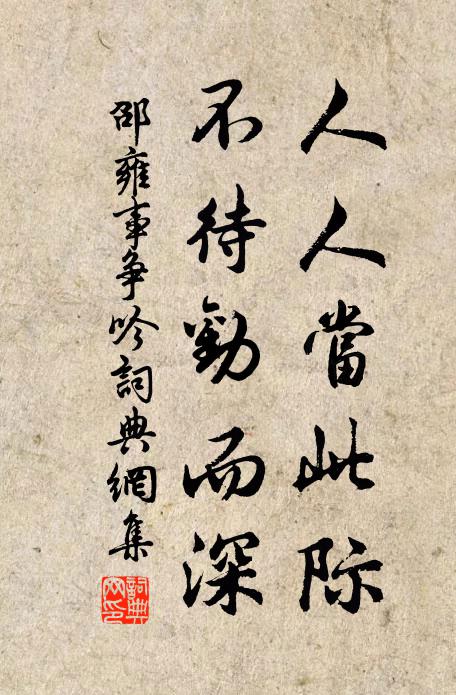 人人當此際
不待勸而深
邵雍事爭吟詞典網集
詞典網印